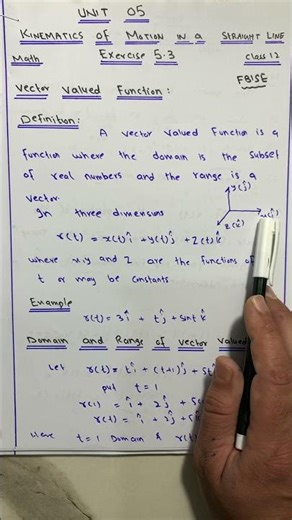 UNIT 05
KINEMATICS of MOTION IN a STRAIGHT LINE
Math Exercise 5.3 Class 12
FBISE
Vector Valued Function:
Definition:
A vector valued function is a
function where the domain is the subset
of real numbers and the range is a
vector.
y(ĵ)
In three dimensions
z(k̂)
r(t) = x(t)î + y(t)ĵ + z(t)k̂
where x,y and z are the functions of
t or may be constants
Example
r(t) = 3î + tĵ + sint k̂
Domain and Range of vector valued
Let r(t) = tî + (t+1)ĵ + 5t
put t = 1
r(1) = î + 2ĵ + 5
r(t) = î + 2ĵ + 5k̂
t = 1 Domain & r(t)